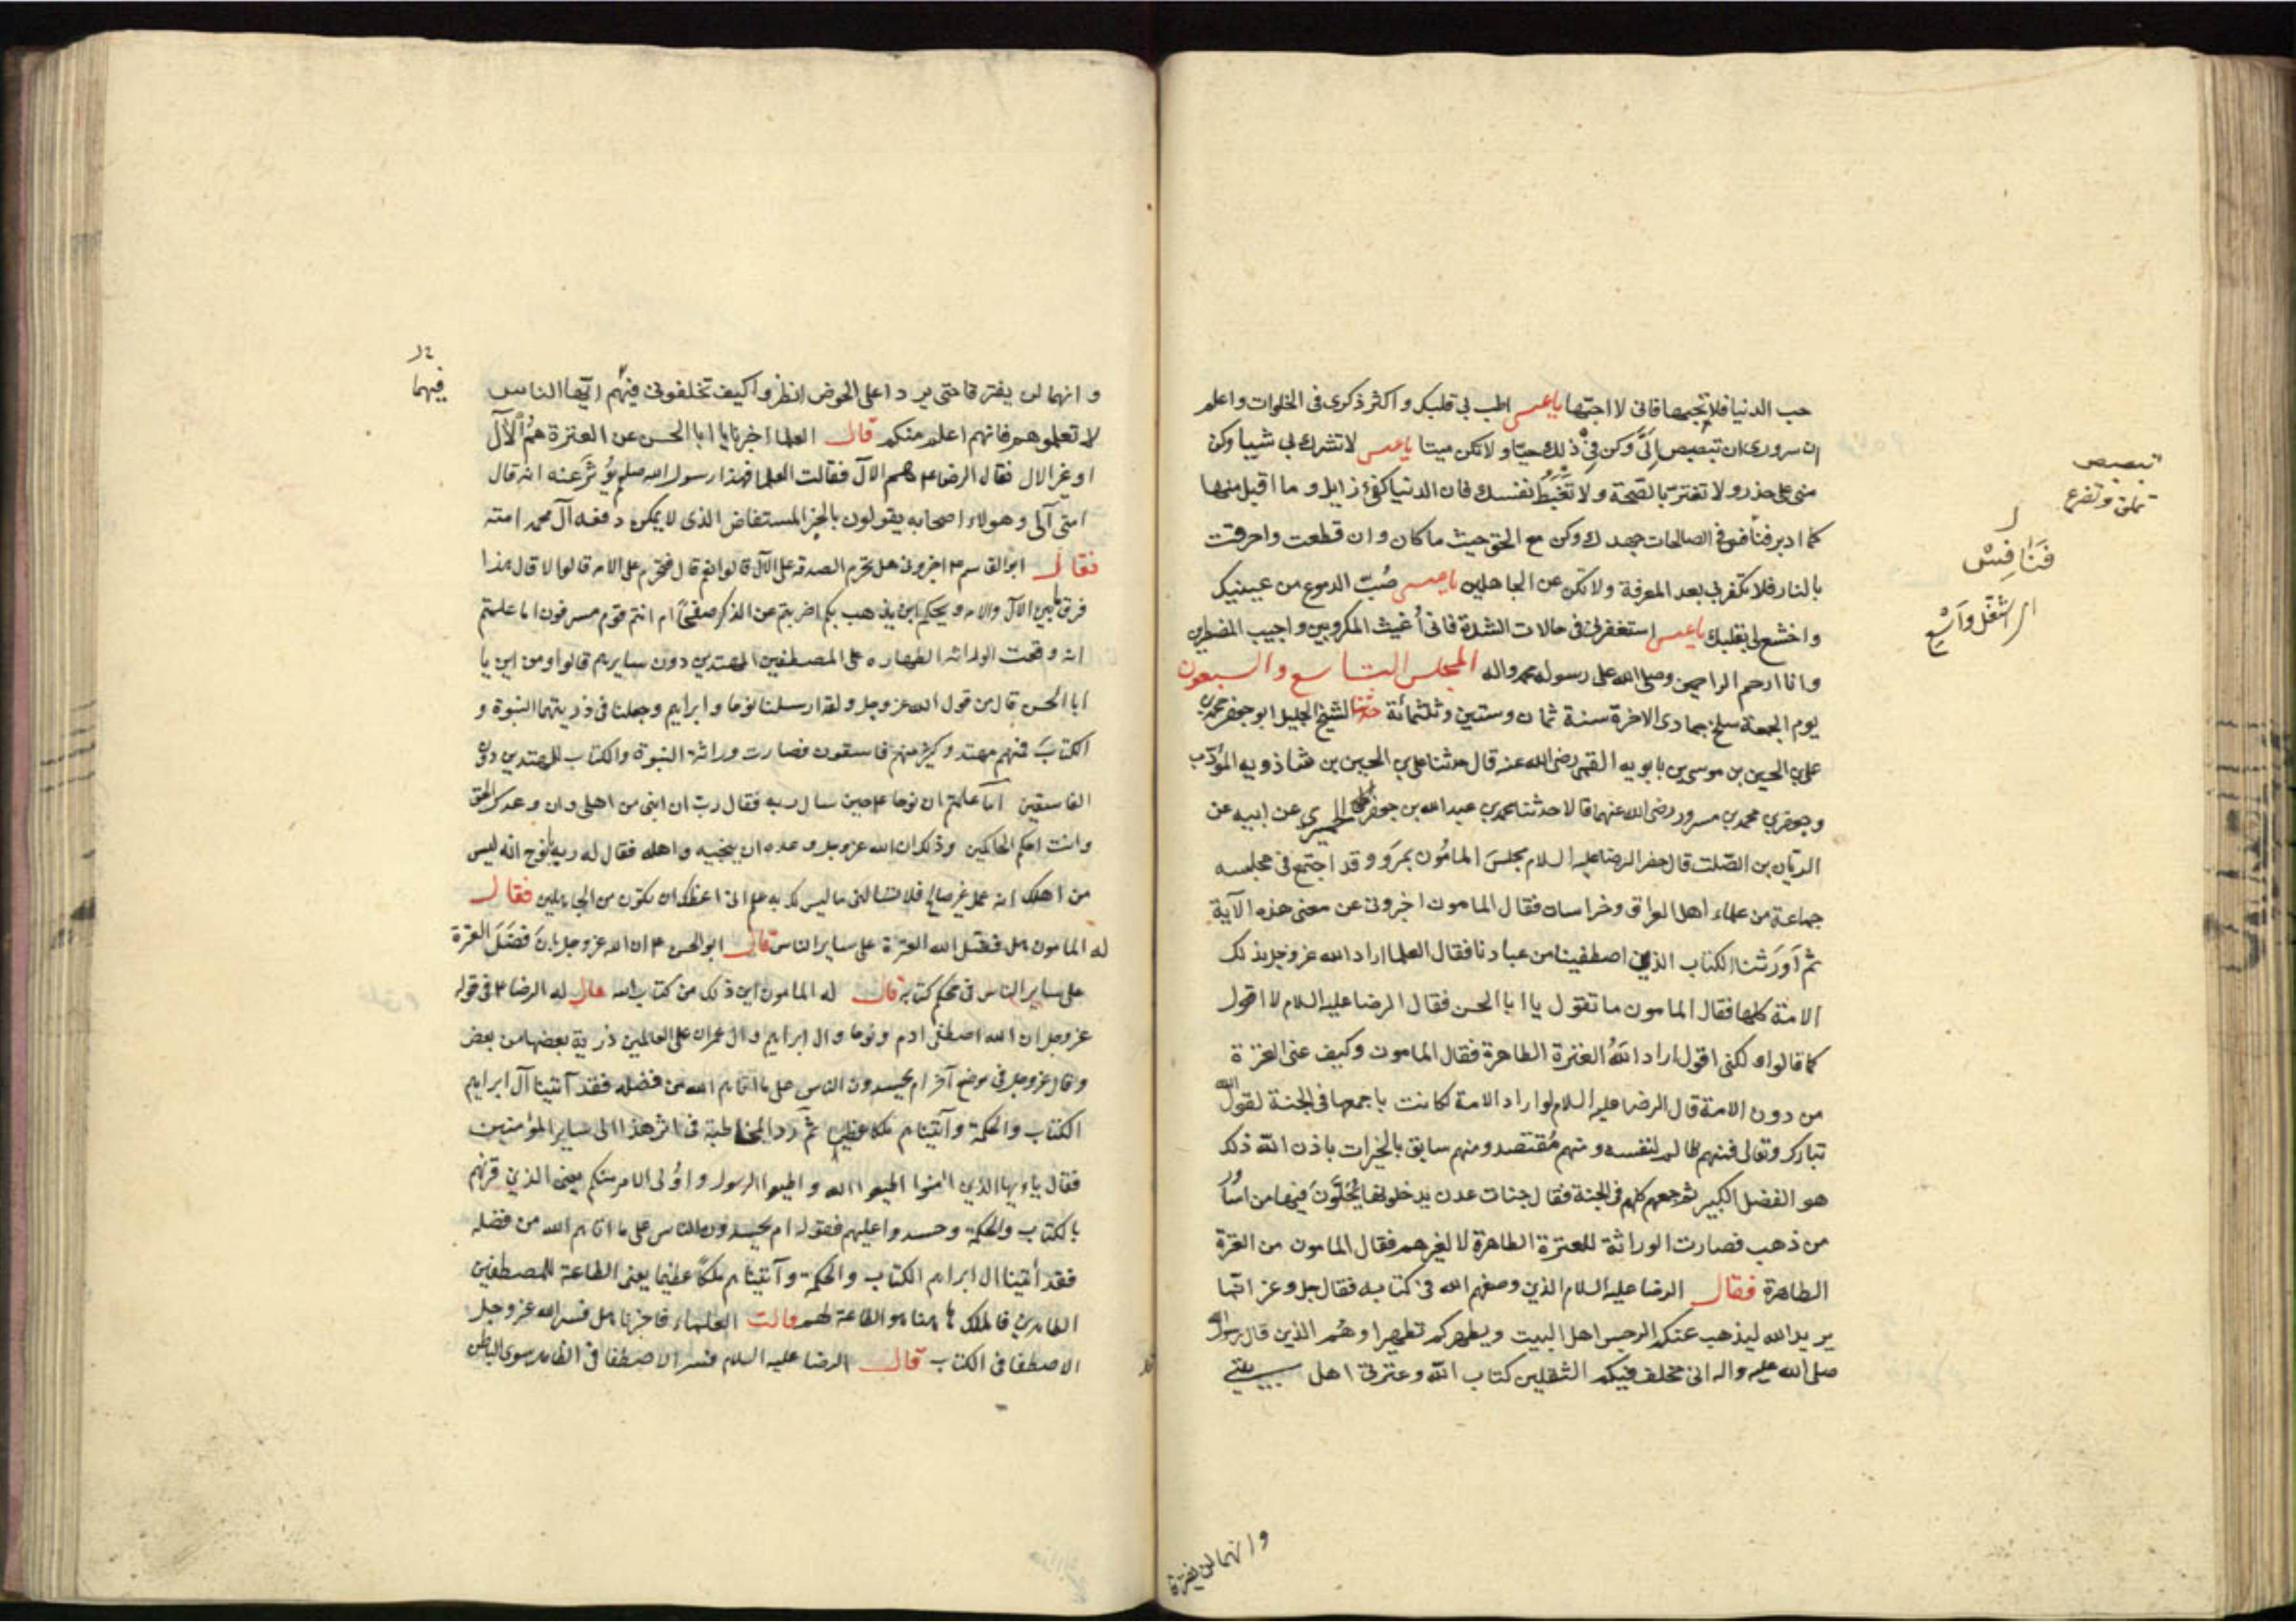 حب الدنيا فلا تحبها فانى لا احبها يا عيسى اطب لى قلبك و اكثر ذكرى فى الخلوات واعلم
ان سرورى ان تبصبص الىّ وكن فى ذلك حيّا ولا تكن ميتا يا عيسى لا تشرك بى شيئا وكن
منى على حذر ولا تغتر بالصحة ولا تغبط نفسك فان الدنيا كفئ زايل و ما اقبل منها
كما ادبر فنافس فى الصالحات جهدك وكن مع الحق حيث ما كان وان قطعت واحرقت
بالنار فلا تكفر بى بعد المعرفة ولا تكن من الجاهلين يا عيسى صُبّ الدموع من عينيك
واخشع لى بقلبك يا عيسى استغفرنى فى حالات الشدة فانى أُغيث المكروبين و اجيب المضطرين
وانا ارحم الراحمين وصلى الله على رسوله محمد واله المجلس التاسع والسبعون
يوم الجمعة سلخ جمادى الاخرة سنة ثمان وستين وثلثمائة حدثنا الشيخ الجليل ابو جعفر محمد بن
على بن الحسين بن موسى بن بابويه القمى رضى الله عنه قال حدثنا على بن الحسين بن شاذويه المؤدّب
وجعفر بن محمد بن مسرور رضى الله عنهما قالا حدثنا محمد بن عبد الله بن جعفر الحميرى عن ابيه عن
الريّان بن الصّلت قال حضر الرضا عليه السلام مجلسَ المأمُون بمَرَو وقد اجتمع فى مجلسه
جماعة من علماء اهل العراق وخراسان فقال المامون اخبرونى عن معنى هذه الآية
ثم أورَثنا الكتاب الذين اصطفينا من عبادنا فقال العلما اراد الله عز وجل بذلك
الامّة كلها فقال المامون ما تقول يا ابا الحسن فقال الرضا عليه السلام لا اقول
كما قالوا ولكنى اقول اراد اللهُ العترة الطاهرة فقال المامون وكيف عنى العترة
من دون الامة قال الرضا عليه السلام لو اراد الامة لكانت باجمعها فى الجنة لقول الله
تبارك وتعالى فمنهم ظالم لنفسه ومنهم مُقتصد ومنهم سابق بالخيرات باذن الله ذلك
هو الفضل الكبير ثم جمعهم كلهم فى الجنة فقال جنات عدن يدخلونها يُحَلَّونَ فيها من اساور
من ذهب فصارت الوراثة للعترة الطاهرة لا لغيرهم فقال المامون من العترة
الطاهرة فقال الرضا عليه السلام الذين وصفهم الله فى كتابه فقال جل وعز انما
يريد الله ليذهب عنكم الرجس اهل البيت ويطهركم تطهيرا وهُم الذين قال رسول الله
صلى الله عليه واله انى مخلف فيكم الثقلين كتاب الله وعترتى اهل بيتى
وانهما لن يفترقا
تبصبص
تملق وتضرع
فَنَافِسْ
و انهما لن يفترقا حتى يردا على الحوض انظروا كيف تخلفونى فيهم ايّها الناس
فيهما
لا تعلموهم فانهم اعلم منكم قال العلما اخبرنا يا ابا الحسن عن العترة هُمُ الآل
او غير الال فقال الرضا ع هم الآل فقالت العلما فهذا رسول الله صلعم يؤثرَ عنه انه قال
امتى آلى وهولاء اصحابه يقولون بالخبر المستفاض الذى لا يمكن دفعه آل محمد امته
فقال ابو القاسم ع اخبرونى هل تحرم الصدقة على الآل قالوا نعم قال فتحرم على الامه قالوا لا قال هذا
فرق ما بين الآل والامه ويحكم اين يذهب بكم اضربتم عن الذكر صفحًا ام انتم قوم مسرفون اما علمتم
انه وقعت الوراثه الطهاره على المصطفين المهتدين دون سايرهم قالوا ومن اين يا
ابا الحسن قال من قول الله عز وجل ولقد ارسلنا نوحا وابراهيم وجعلنا فى ذريتهما النبوة و
الكتابَ فمنهم مهتد وكثير منهم فاسقون فصارت وراثة النبوة والكتاب للمهتدين دون
الفاسقين اما علمتم ان نوحا ع حين سال ربه فقال رب ان ابنى من اهلى وان وعدك الحق
وانت احكم الحاكمين وذلك ان الله عز وجل وعده ان ينجيه واهله فقال له ربه يا نوح انه ليس
من اهلك انه عمل غير صالح فلا تسالنى ما ليس لك به علم انى اعظك ان تكون من الجاهلين فقال
له المامون هل فضل الله العترة على ساير الناس قال ابو الحسن ع ان الله عز وجل ابانَ فضَلَ العترة
على ساير الناس فى محكم كتابه قال له المامون اين ذلك من كتاب الله قال له الرضا ع فى قوله
عز وجل ان الله اصطفى ادم ونوحا وال ابراهيم وال عمران على العالمين ذرية بعضها من بعض
وقال عز وجل فى موضع آخر ام يحسدون الناس على ما اتاهم الله من فضله فقد آتينا آل ابراهيم
الكتاب والحكمة وآتيناهم ملكا عظيما ثم رد المخاطبة فى اثر هذا الى ساير المؤمنين
فقال يا ايها الذين امنوا اطيعوا الله و اطيعوا الرسول واُولى الامر منكم يعنى الذين قرنهم
بالكتاب والحكمة وحسدوا عليهم فقوله ام يحسدون الناس على ما اتاهم الله من فضله
فقد أتينا ال ابراهيم الكتاب والحكمة وآتيناهم ملكًا عظيما يعنى الطاعة للمصطفين
الطاهرين فالملك هاهنا هو الطاعة لهم قالت العلماء فاخبرنا هل فسر الله عز وجل
الاصطفا فى الكتاب قال الرضا عليه السلام فسر الاصطفا فى الظاهر سوى الباطن